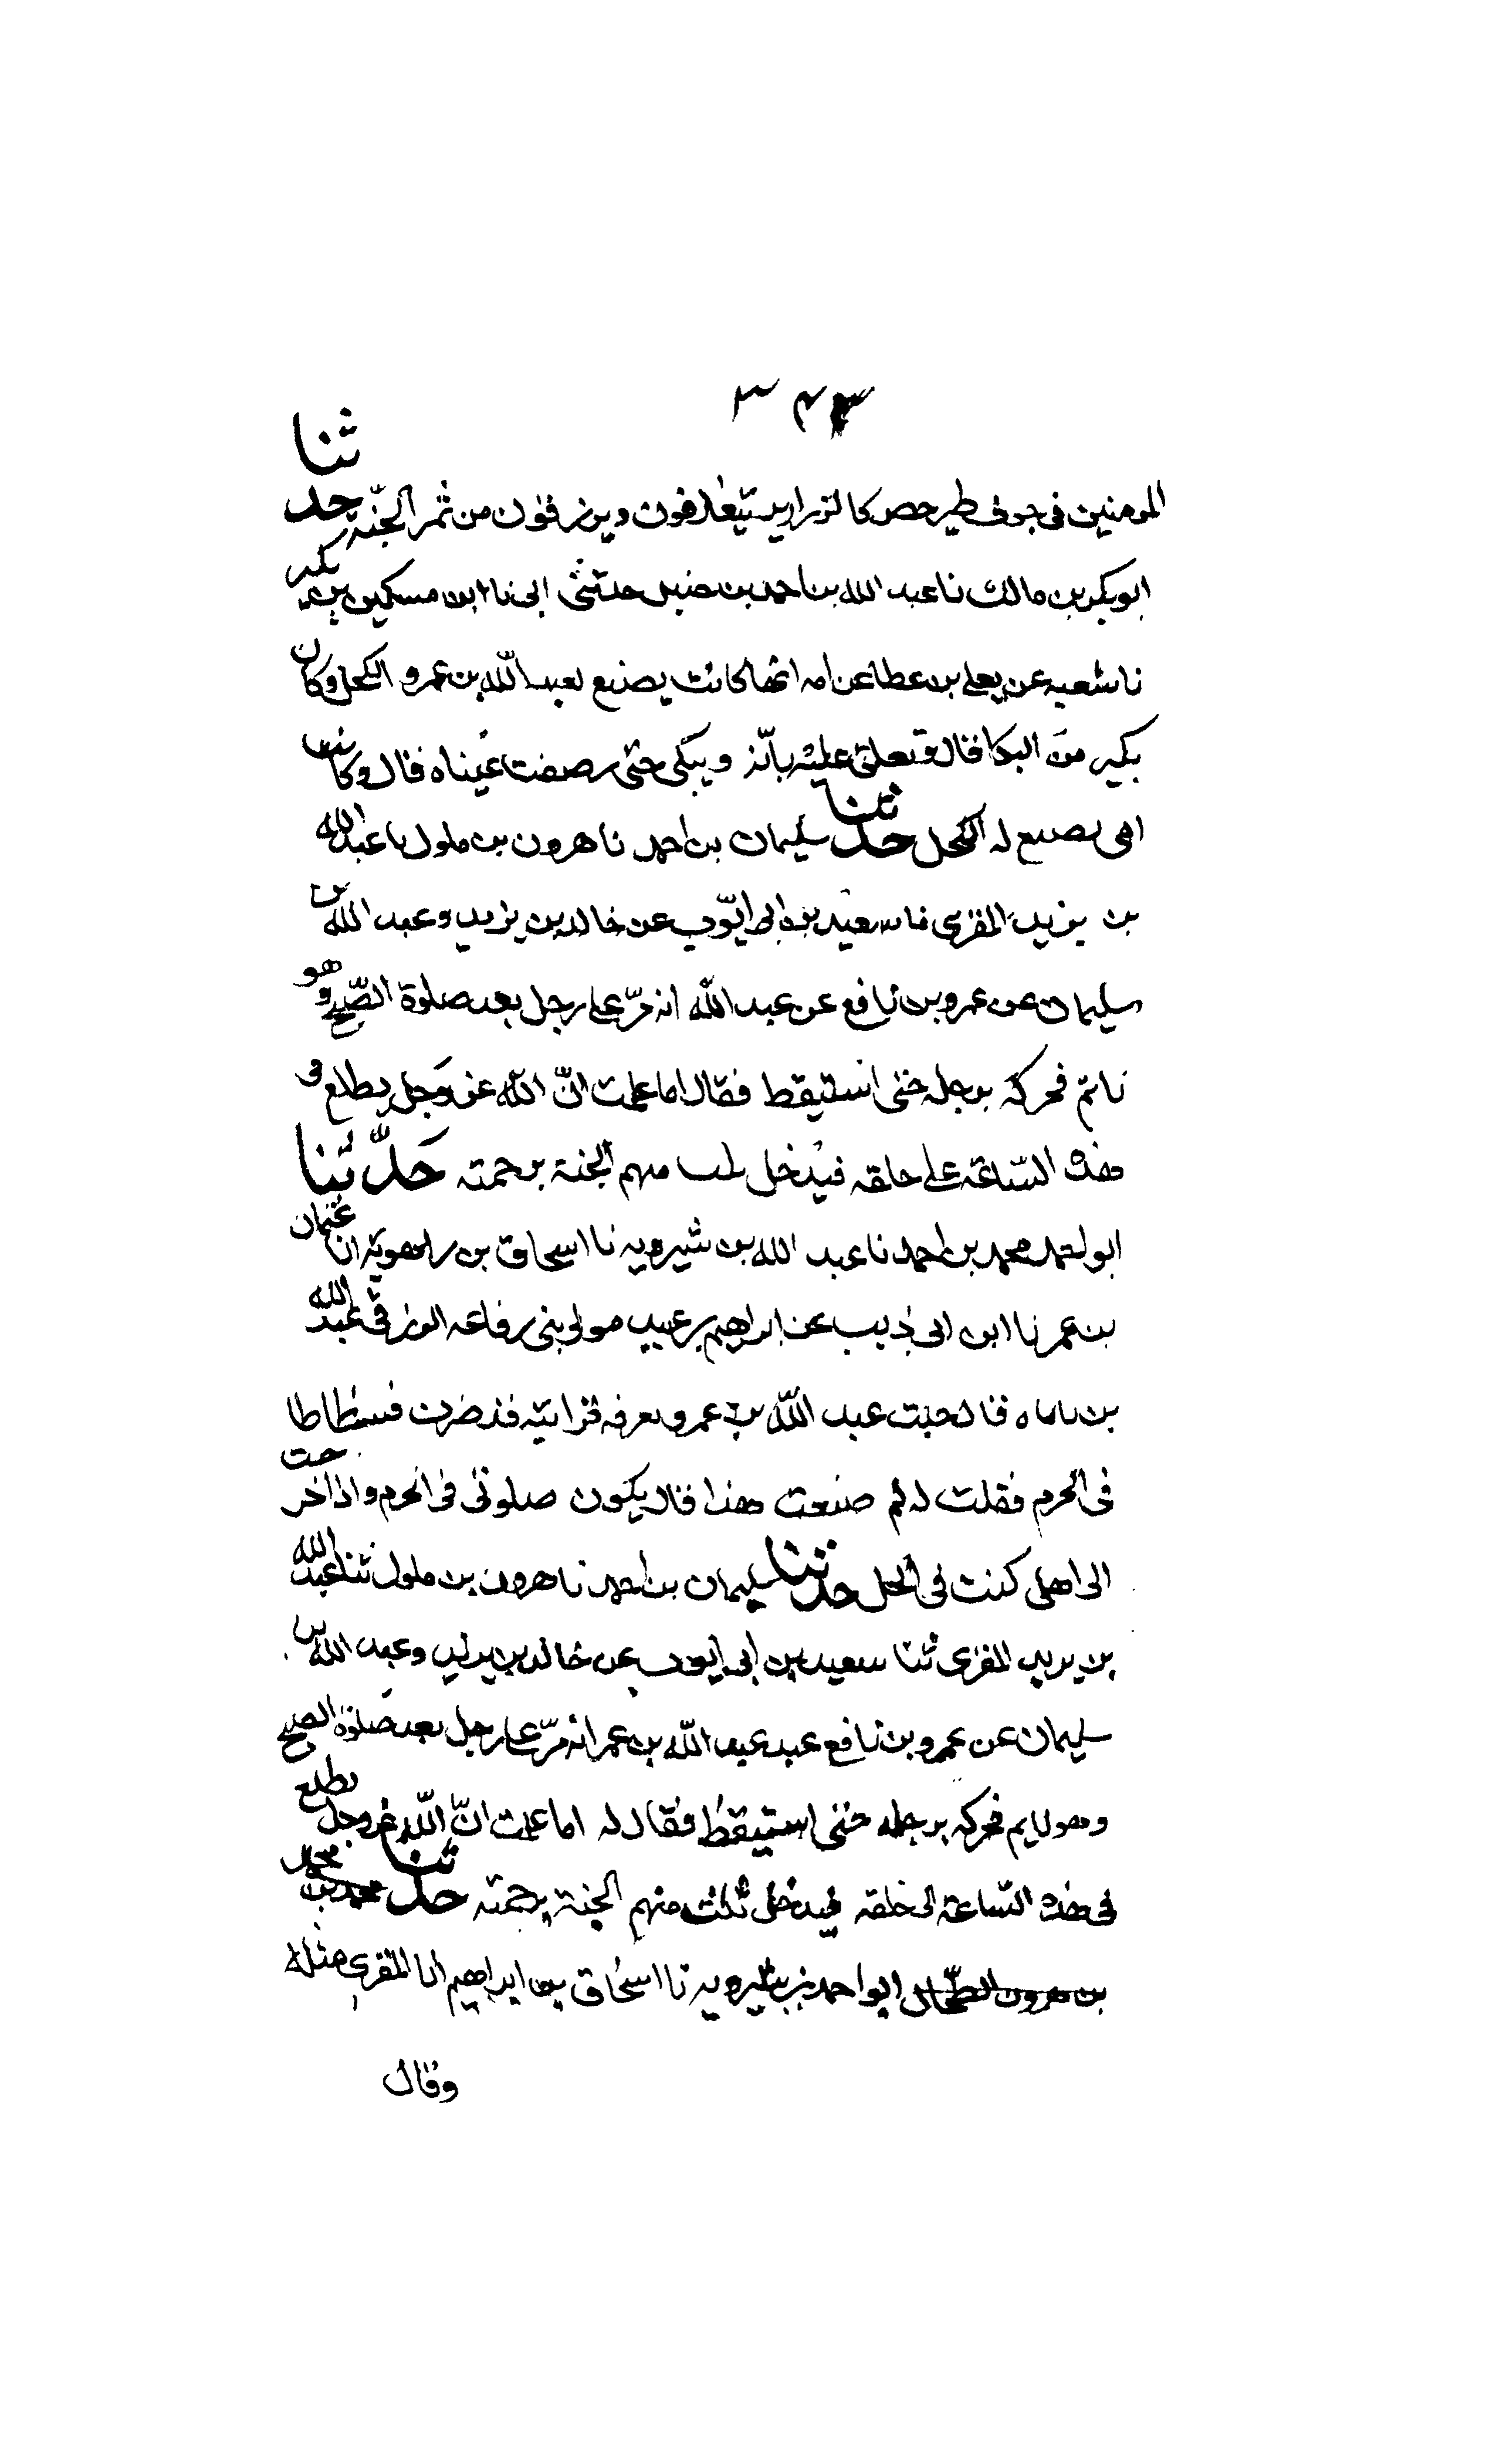 ٣٤٣
المومنين فى جوف طير خضر كالزرازير يتعارفون ويرزقون من ثمر الجنّة حدثنا
ابوبكر بن مالك نا عبد الله بن احمد بن حنبل حدثنى ابى نا ابن مسكين بن بكير
نا شعبه عن يعلى بن عطا عن امه انها كانت يصنع لعبد الله بن عمرو الكحل وكان
بكير من البكا قال وتعلق عليه بابه ويبكى حتى رصفت عيناه قال وكانت
امى تصنع له الكحل حدثنا سليمان بن احمد نا هرون بن ملول نا عبد الله
بن يزيد المقرى نا سعيد بن ابى ايّوب عن خالد بن يزيد وعبد الله بن
سليمان عن عمرو بن نافع عن عبد الله انه مرّ على رجل بعد صلوة الصّبح وهو
نائم فحركه برجله حتى استيقط فقال اما علمت انّ الله عز وجل يطلع فى
هذه السّاعة على خلقه فيدخل ثلث منهم الجنة برحمته حدّثنا
ابو احمد محمد بن احمد نا عبد الله بن شيرويه نا اسحاق بن راهويه انا عثمان
بن عمر نا ابن ابى ذيب عن ابراهيم بن عبيد مولى بنى رفاعه الزرقى عبد الله
بن باباه قال جئت عبد الله بن عمرو بعرفه فرايته قد ضرب فسطاطا
فى الحرم فقلت له لم صنعت هذا قال يكون صلوتى فى الحرم واذا خرجت
الى اهلى كنت فى الحل حدثنا سليمان بن احمد نا هرون بن ملول ثنا عبد الله
بن يزيد المقرى ثنا سعيد بن ابى ايوب عن خالد بن يزيد وعبد الله بن
سليمان عن عمرو بن نافع عبد عبد الله بن عمر انه مرّ على رجل بعد صلوة الصبح
وهو نايم فحركه برجله حتى استيقط فقال له اما علمت انّ اللّه عز وجل يطلع
فى هذه السّاعة الى خلقه فيدخل ثلث منهم الجنة برحمته حدثنا محمد بن محمد
بن هرون الطحّال ابو احمد بن شيرويه نا اسحاق بن ابراهيم انا المقرى مثله
وقال